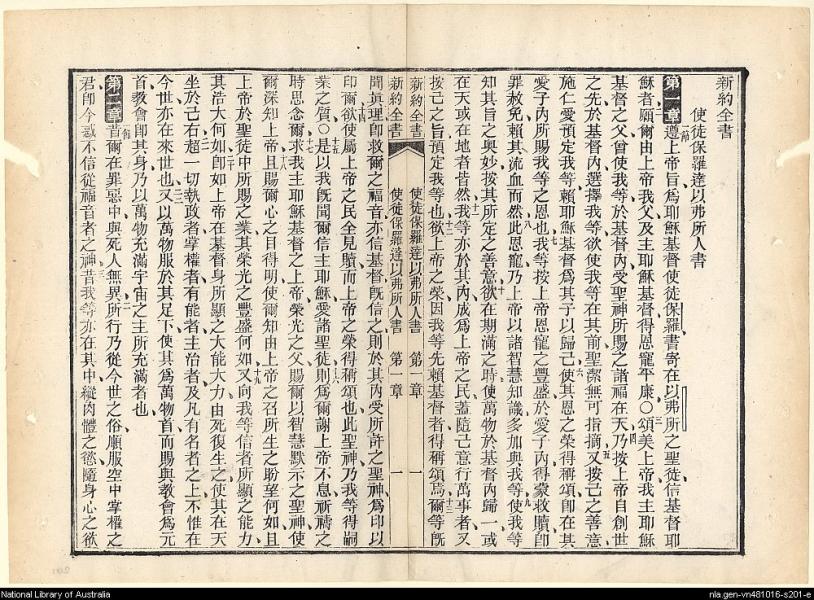 新約全書
使徒保羅達以弗所人書
第一章遵上帝旨爲耶穌基督使徒保羅書寄在以弗所之聖徒信基督耶
穌者願爾由上帝我父及主耶穌基督得恩寵平康○頌美上帝我主耶穌
基督之父曾使我等於基督內受聖神所賜之諸福在天乃按上帝自創世
之先於基督內選擇我等欲使我等在其前聖潔無可指摘又按己之善意
施仁愛預定我等賴耶穌基督爲其子以歸己使其恩之榮得稱頌卽在其
愛子內所賜我等之恩也我等按上帝恩寵之豐盛於愛子內得蒙救贖卽
罪赦免賴其流血而然此恩寵乃上帝以諸智慧知識多加與我等使我等
知其旨之奧妙按其所定之善意欲在期滿之時使萬物於基督內歸一或
在天或在地者皆然我等亦於其內成爲上帝之民蓋隨己意行萬事者又
按己之旨預定我等也欲上帝之榮因我等先賴基督者得稱頌焉爾等旣
新約全書 使徒保羅達以弗所人書 第一章 一
新約全書 使徒保羅達以弗所人書 第一章 一
聞眞理卽救爾之福音亦信基督旣信之則於其內受所許之聖神爲印以
印爾欲使屬上帝之民全見贖而上帝之榮得稱頌也此聖神乃我等得嗣
業之質○是以我旣聞爾信主耶穌愛諸聖徒則爲爾謝上帝不息祈禱之
時思念爾求我主耶穌基督之上帝榮光之父賜爾以智慧默示之聖神使
爾深知上帝且賜爾心之目得明使爾知由上帝之召所生之盼望何如且
上帝於聖徒中所賜之業其榮光之豐盛何如又向我等信者所顯之能力
其浩大何如卽如上帝在基督身所顯之大能大力由死復生之使其在天
坐於己右超一切執政者掌權者有能者主治者及凡有名者之上不惟在
今世亦在來世也又以萬物服於其足下使其爲萬物首而賜與教會爲元
首教會卽其身乃以萬物充滿宇宙之主所充滿者也
第二章昔爾在罪惡中與死人無異所行乃從今世之俗順服空中掌權之
君卽今惑不信從福音者之神昔我等亦在其中縱肉體之慾隨身心之欲
National Library of Australia
nla.gen-vn481016-s201-e